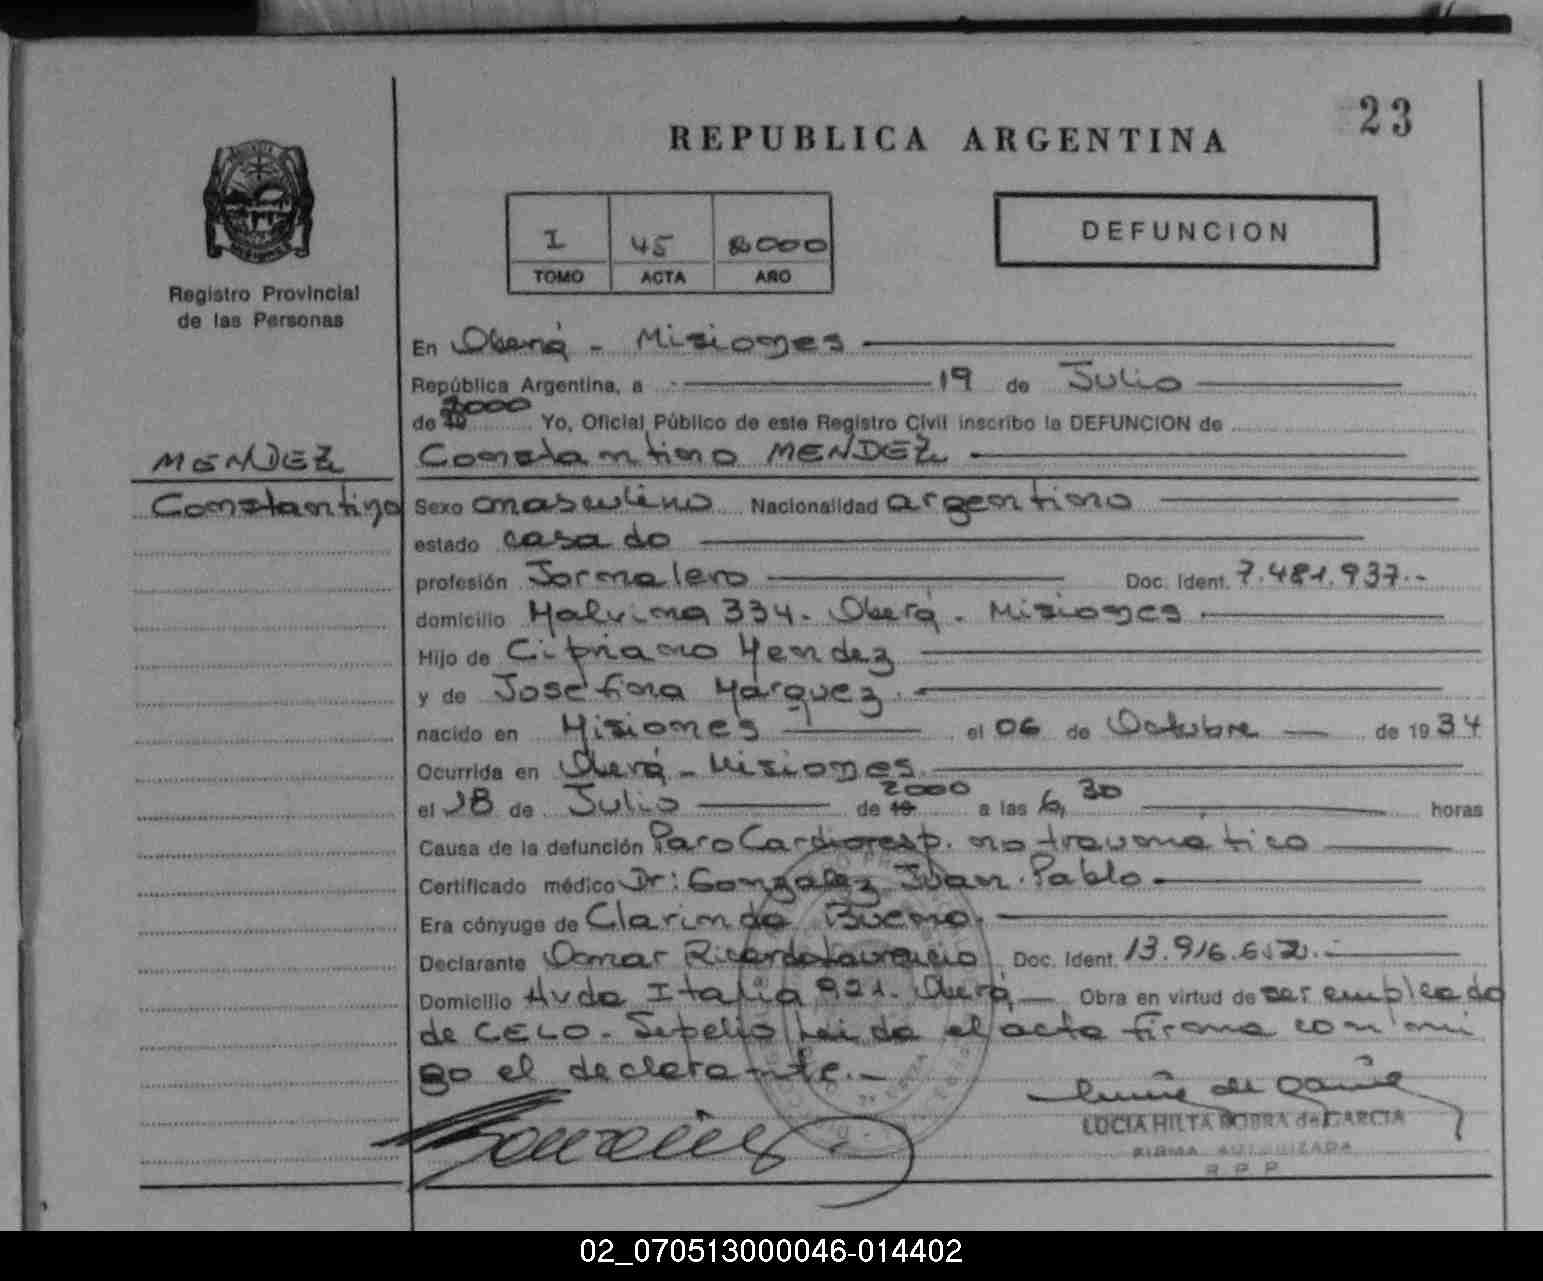 23
REPUBLICA ARGENTINA
I 45 2000
TOMO ACTA AÑO
DEFUNCION
Registro Provincial
de las Personas
En Oberá - Misiones
República Argentina, a 19 de Julio
de 19 2000 Yo, Oficial Público de este Registro Civil inscribo la DEFUNCION de
MENDEZ
Constantino MENDEZ
Constantino
Sexo masculino Nacionalidad argentino
estado casado
profesión Jornalero Doc. Ident. 7.481.937.-
domicilio Malvina 334. Oberá. Misiones
Hijo de Cipriano Mendez
y de Josefina Marquez.
nacido en Misiones el 06 de Octubre de 1934
Ocurrida en Oberá - Misiones
el 18 de Julio de 19 2000 a las 6,30 horas
Causa de la defunción Paro Cardioresp. no traumatico
Certificado médico Dr: Gonzalez Juan Pablo
Era cónyuge de Clarinda Bueno.
Declarante Omar Ricardo Doc. Ident. 13.916.652.-
Domicilio Avda Italia 921. Oberá Obra en virtud de ser empleado
de CELO. Sepelio Leida el acta firma conmi
go el declarante.-
LUCIA HILTA BOBRA de GARCIA
FIRMA AUTORIZADA
R. P. P.
02_070513000046-014402